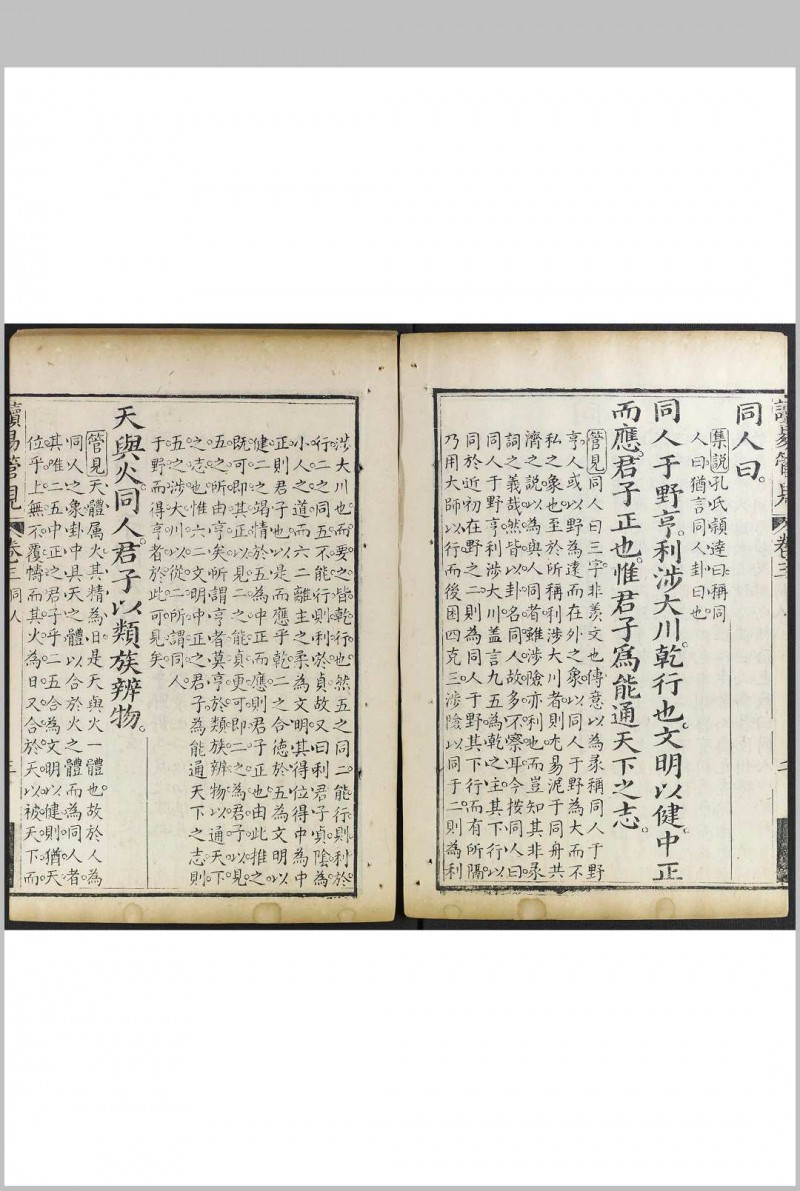 同人曰。
集說孔氏頴達曰稱同
人曰猶言同人卦曰也。
同人于野亨。利涉大川。乾行也。文明以健。中正
而應。君子正也。惟君子爲能通天下之志。
管見同人曰三字非羨文也傳意以為柔稱同人于野
亨人或以野為遠而在外之象以同人于野為大而不
私之象也至於所稱利涉大川者則尢易泥于同舟共
濟之說以為與人同者雖涉險亦利也而豈知其非彖
詞之義哉然皆以卦名同人故多不察耳今按同人曰
同人于野亨利涉大川盖言九五為乾之主其下行以
同於近初在野之二則為同人于野其下行而有所隔
乃用大師以行而後困四克三涉險以同于二則為利
涉大川也而要之皆乾行也然五之同二能行則利於
行二之同五不能行則利於貞故又曰利君子貞陰為
小人之道而六二離主之柔為文明其得位得中為中
正則君子也以是而應乎乾二之合德於五為文明以
健二之竭情於五為中正而應則君子正也由此推之
既可即其正以見二之能貞更可即二之為君子以見
五之所由亨矣所謂亨者莫亨於類族辨物以通天下
之志也惟六二文明中正之君子為能通天下之志則
五之涉大川以從二所謂同人
于野而得亨者於此可見矣
天與火。同人。君子以類族辨物。
管見天體属火其精為日是天與火一體也故於人為
同人之象卦中具天之體以合於火之體而為同人者
其唯二五中正之君子乎二五合為文明以健則猶天
位乎上無不覆幬而其火為日又合於天以被天下而
讀易管見 卷三 同人